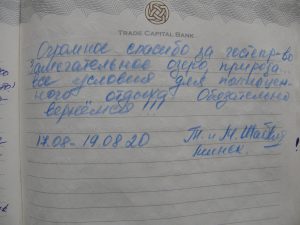 TRADE CAPITAL BANK
Огромное спасибо за гостепр-во
Замечательное озеро, природа...
все условия для полноцен-
ного отдыха Обязательно
вернёмся!!!
17.08-19.08.20 Т. и М.